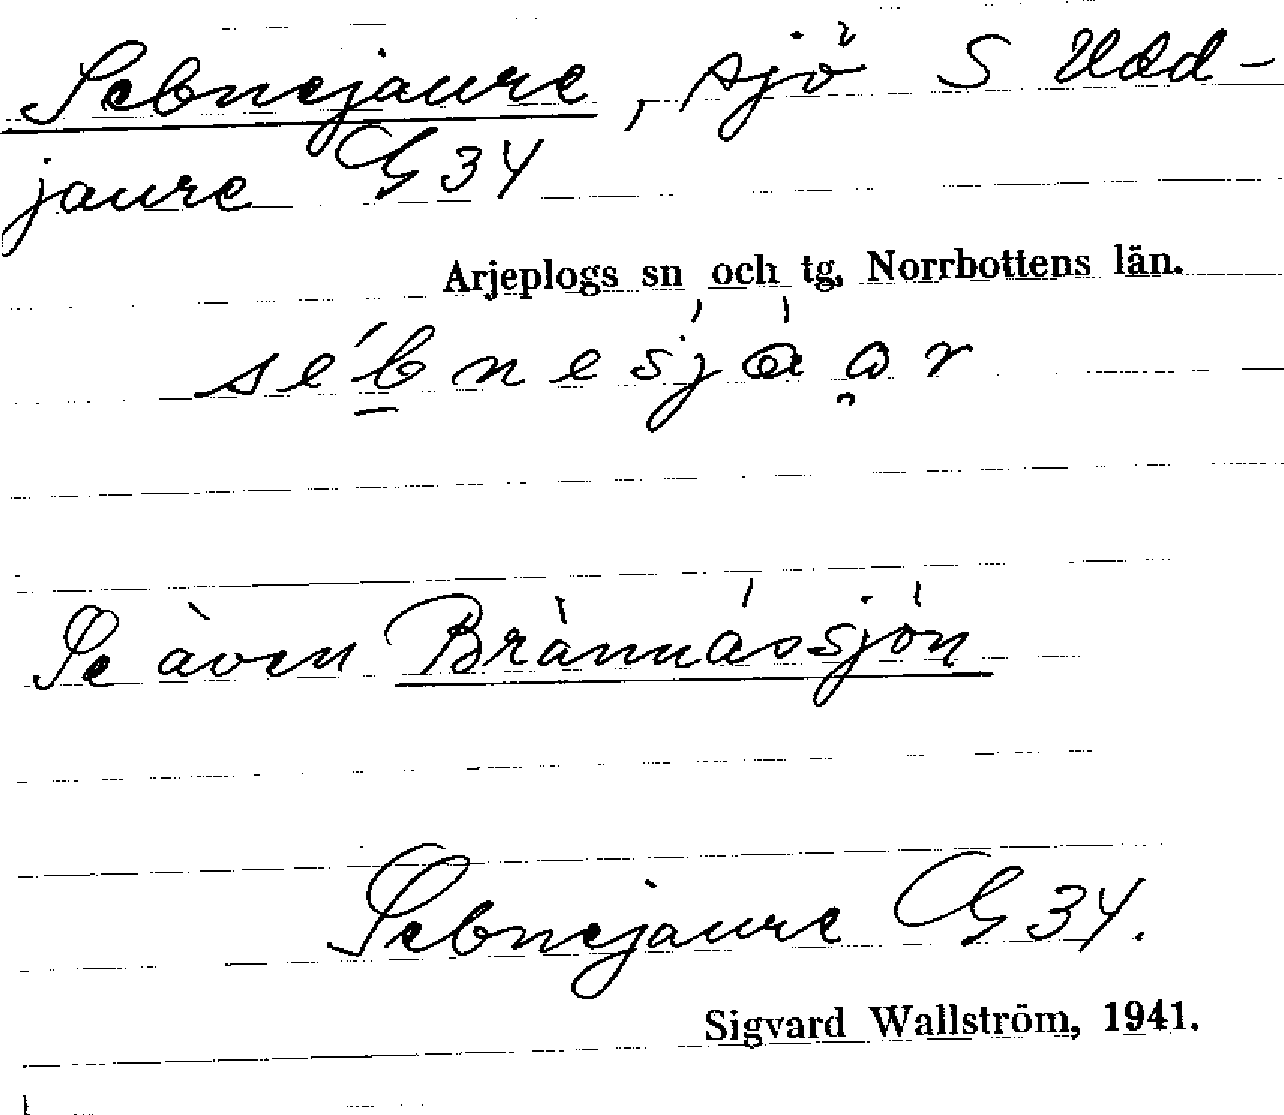 Sebnejaure, sjö S Udd-
jaure G 34
Arjeplogs sn och tg, Norrbottens län.
Se även Brännässjön
Sebnejaure G 34.
Sigvard Wallström, 1941.